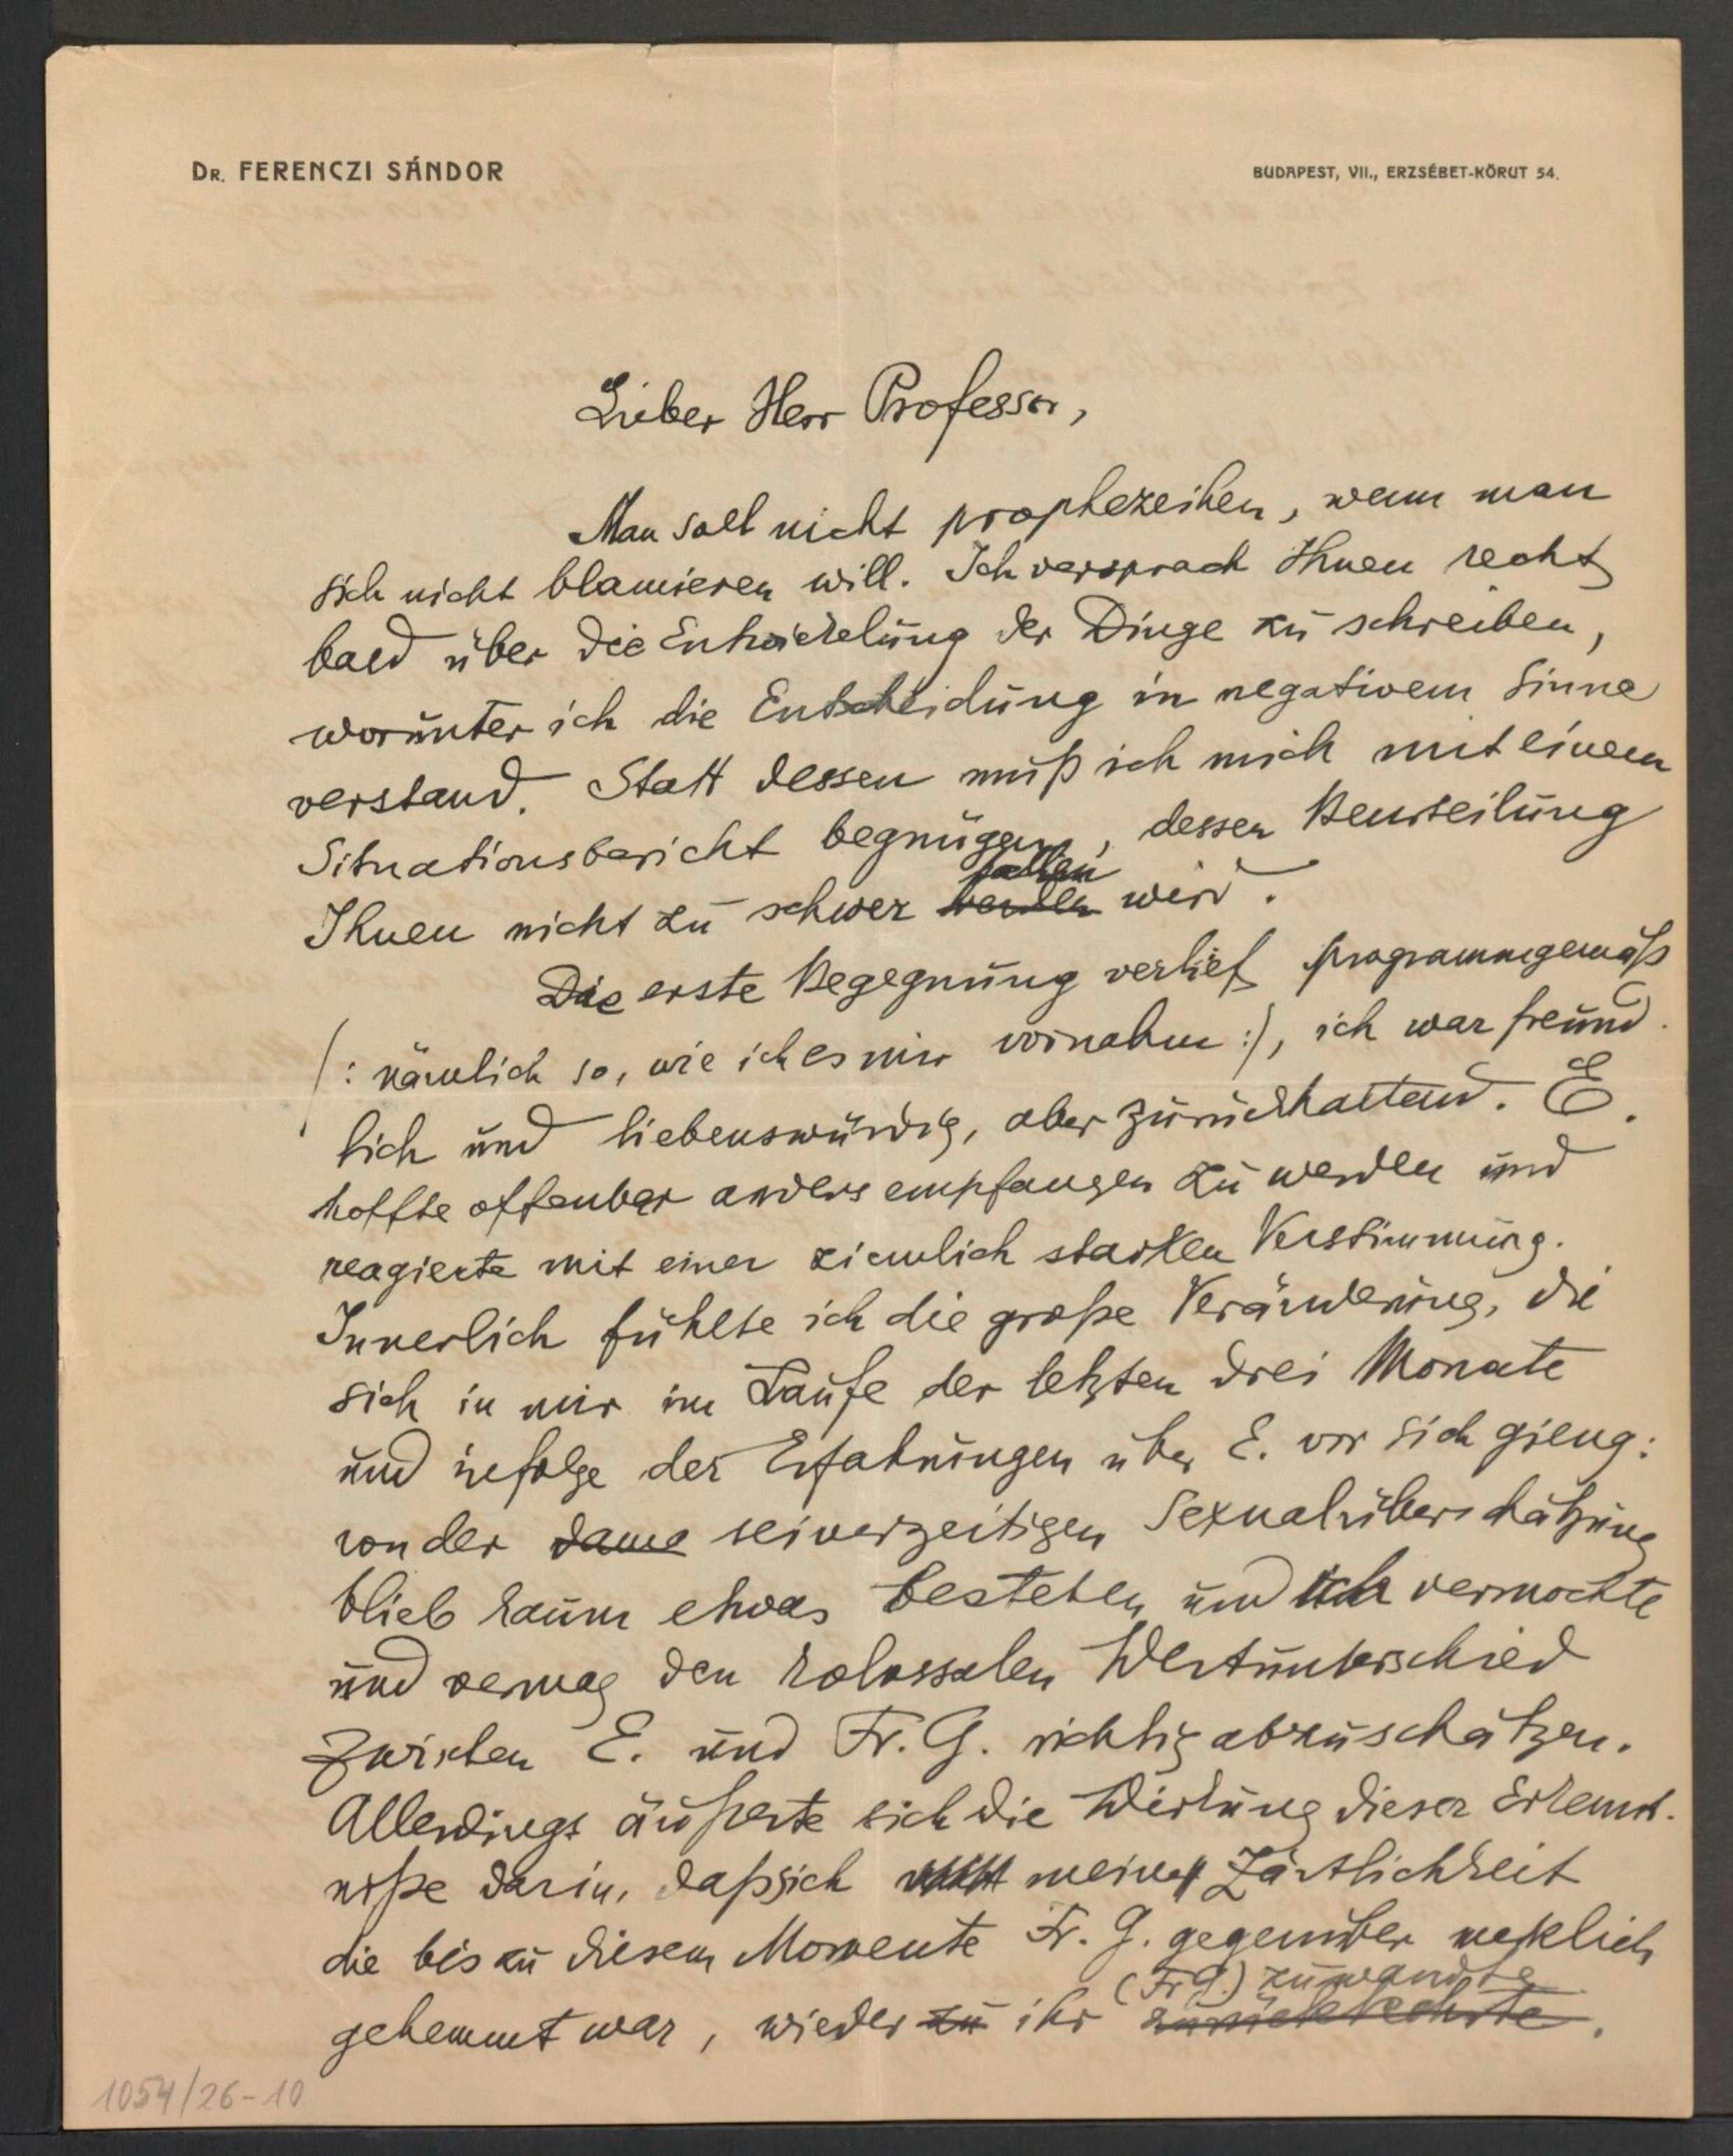 DR. FERENCZI SÁNDOR
BUDAPEST, VII., ERZSÉBET-KÖRUT 54.
Lieber Herr Professor,
Man soll nicht prophezeihen, wenn man
sich nicht blamieren will. Ich versprach Ihnen recht
bald über die Entwickelung der Dinge zu schreiben,
worunter ich die Entscheidung in negativem Sinne
verstand. Statt dessen muß ich mich mit einem
Situationsbericht begnügen, dessen Beurteilung
fallen
Ihnen nicht zu schwer werden wird.
Die erste Begegnung verlief programmgemäß
/: nämlich so, wie ich es mir vornahm :/, ich war freund-
lich und liebenswürdig, aber zurückhaltend. E.
hoffte offenbar anders empfangen zu werden und
reagierte mit einer ziemlich starken Verstimmung.
Innerlich fühlte ich die große Veränderung, die
sich in mir im Laufe der letzten drei Monate
und infolge der Erfahrungen über E. vor sich gieng:
von der dama seinerzeitigen Sexualüberschätzung
blieb kaum etwas bestehen und ich vermochte
und vermag den kolossalen Wertunterschied
zwischen E. und Fr. G. richtig abzuschätzen.
Allerdings äußerte sich die Wirkung dieser Erkennt-
niße darin, daß sich meine Zärtlichkeit
die bis zu diesem Momente Fr. G. gegenüber merklich
(Fr G.) zuwandte
gehemmt war, wieder zu ihr zurückkehrte.
1054/26-10